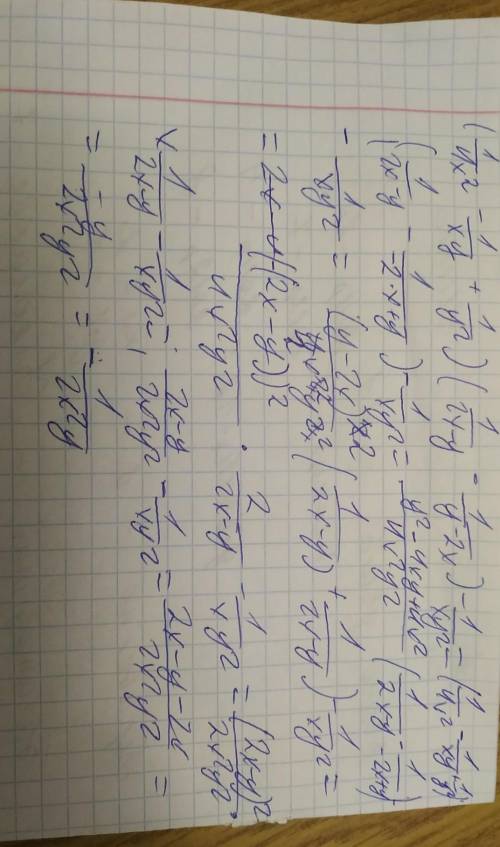 (1/4x² - 1/xy + 1/y²) (1/2x-y - 1/y-2x) - 1/xy² = (1/4x² - 1/xy + 1/y²)
(1/2x-y - 1/-2x+y) - 1/xy² = y²-4xy+4x²/4x²y² (1/2x-y - 1/-2x+y)
- 1/xy² = (y-2x)²/4x²y² (1/2x-y + 1/2x-y) - 1/xy² =
= (2x-y)²/4x²y² · 2/2x-y - 1/xy² = (2x-y)²/2x²y² ·
× 1/2x-y - 1/xy² = 2x-y/2x²y² - 1/xy² = 2x-y-2x/2x²y² =
= -y/2x²y² = - 1/2x²y